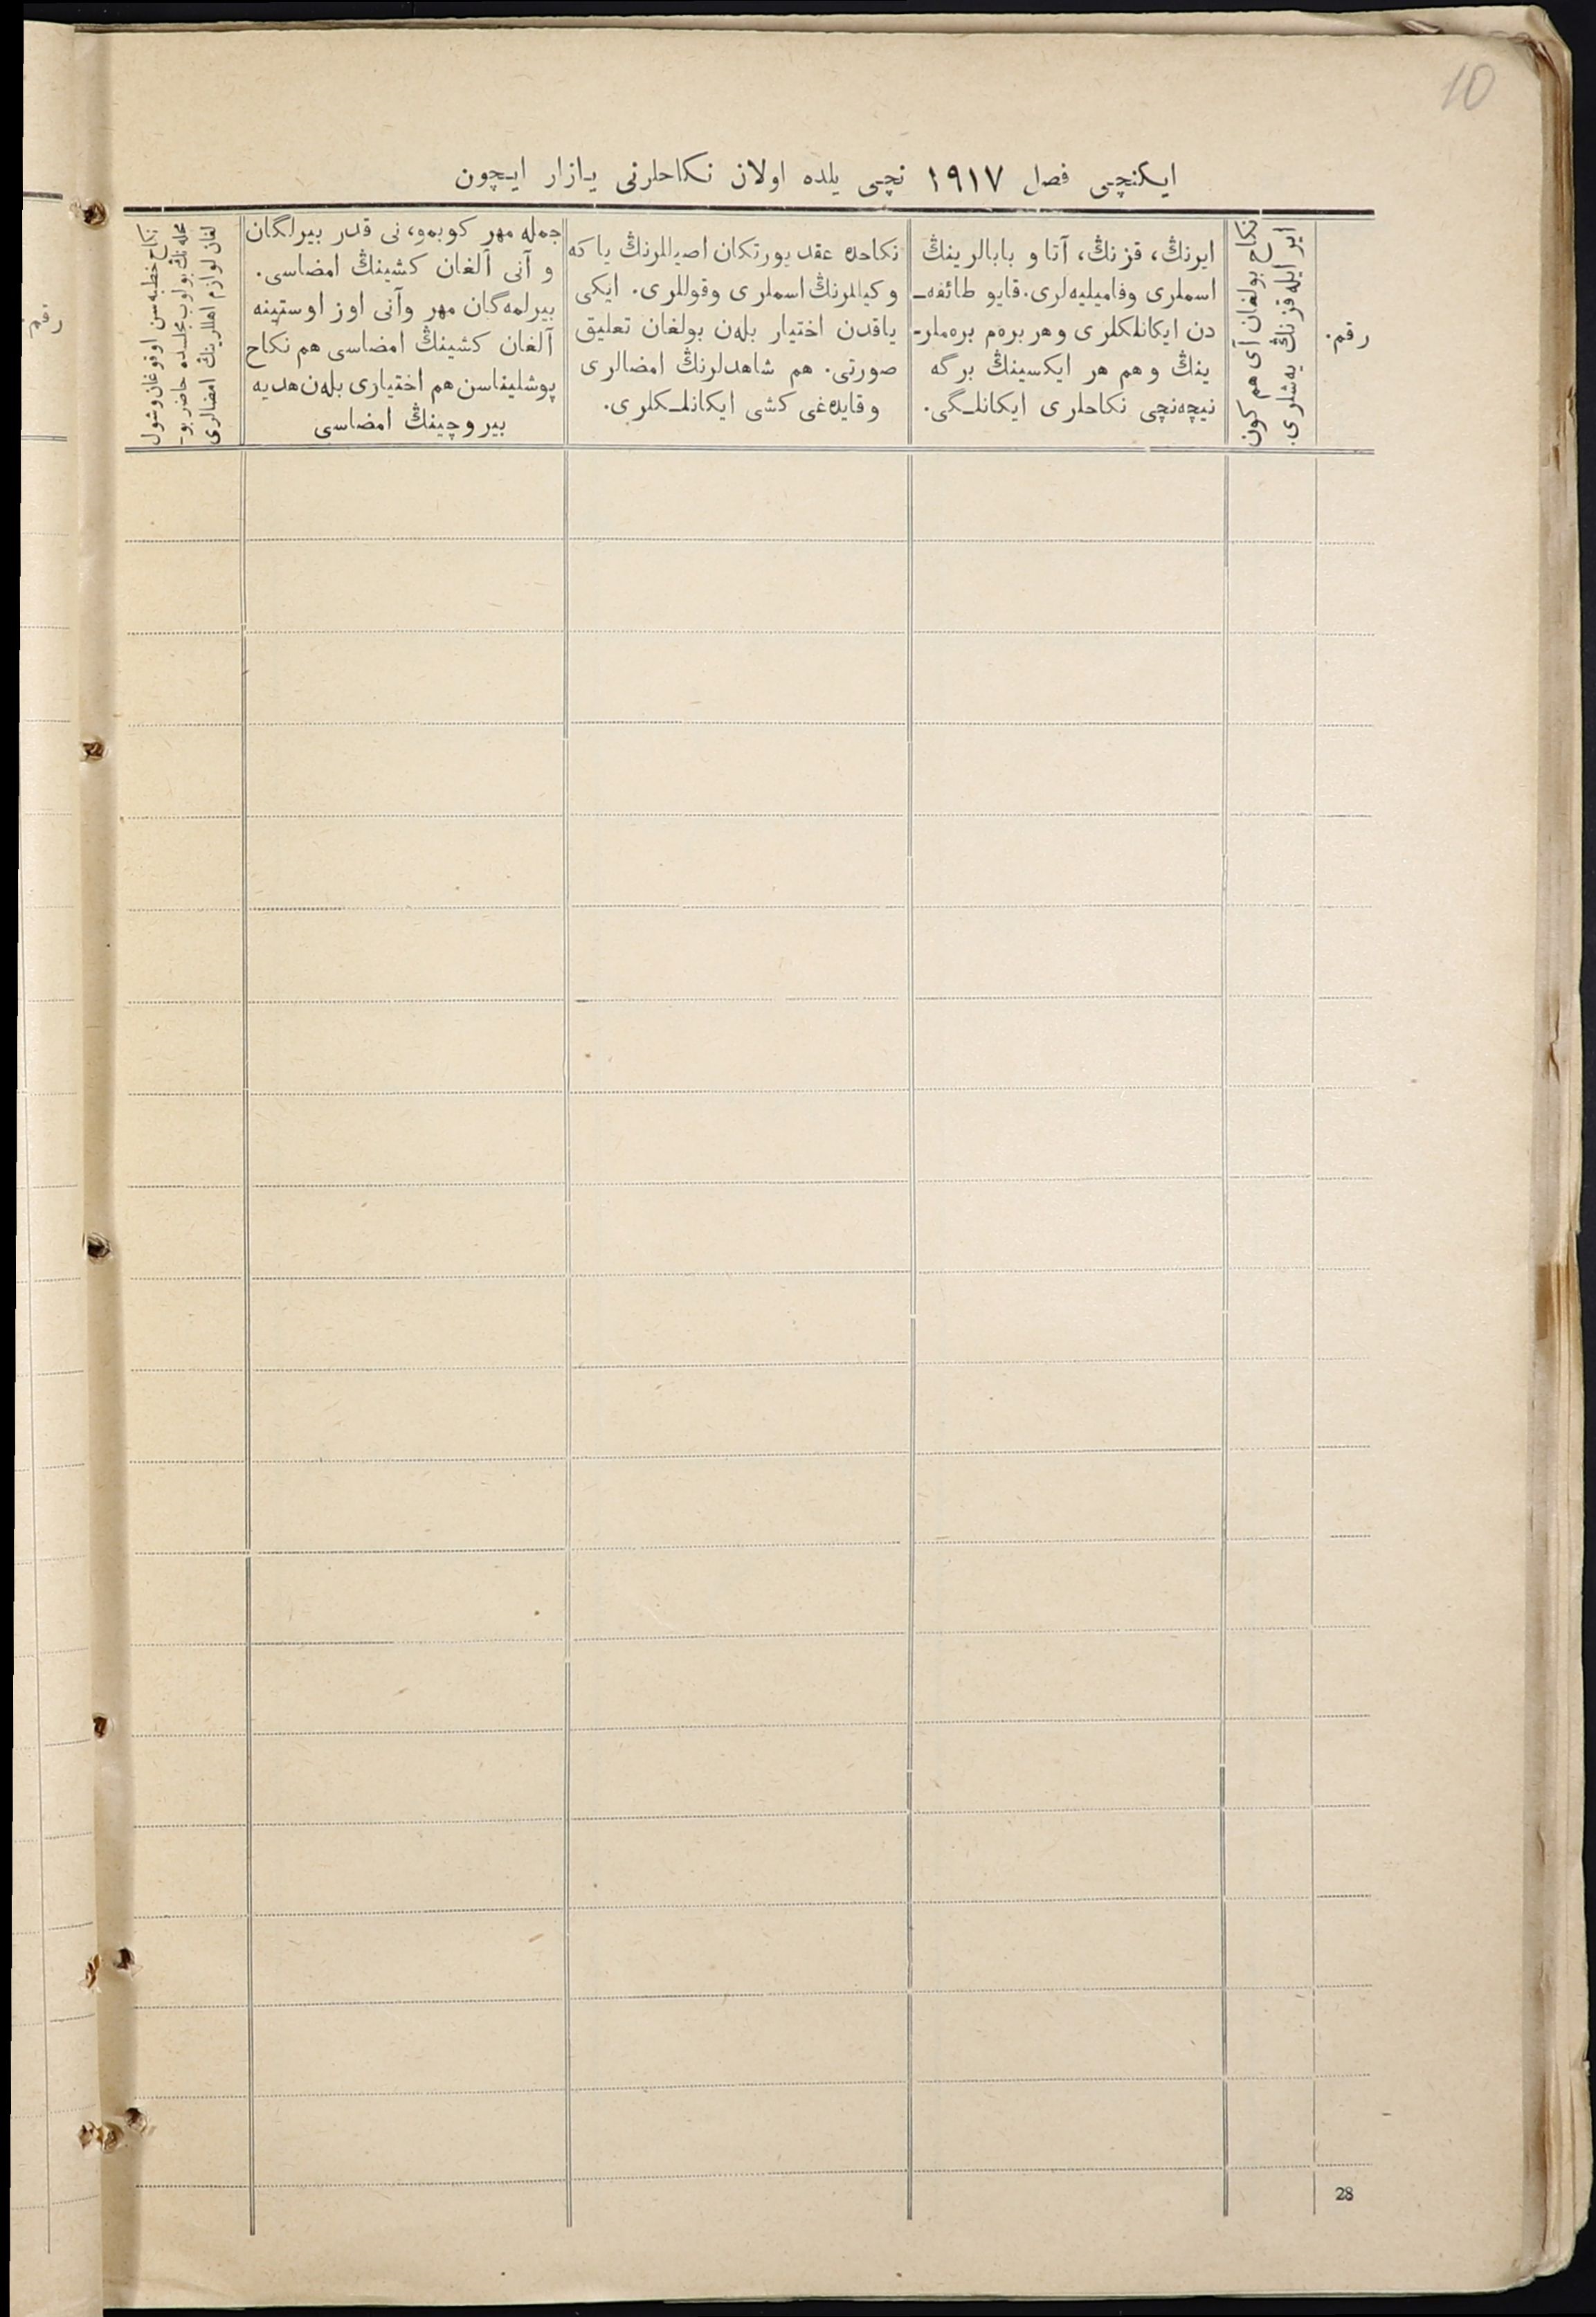 10
ایکنچی فصل ١٩١٧ نچی یلده اولان نکاحلرنی یازار ایچون
رقم.
ایر ایله قزنڭ یەشلری.
نکاح بولغان آی هم کون
ایرنڭ، قزنڭ، آتا و بابالرینڭ
اسملری وفامیلیەلری. قایو طائفەـ
دن ایکانلکلری وهر برەم برەملرـ
ینڭ وهم هر ایکسینڭ برگە
نیچەنچی نکاحلری ایکانلـگی.
نکاحده عقد یورتکان اصیللرنڭ یا کە
وکیللرنڭ اسملری وقوللری. ایکی
یاقدن اختیار بلەن بولغان تعلیق
صورتی. هم شاهدلرنڭ امضالری
وقایدەغی کشی ایکانلـکلری.
جمله مهر کوبمو، نی قدر بیرلگان
و آنی آلغان کشینڭ امضاسی.
بیرلمەگان مهر وآنی اوز اوستینه
آلغان کشینڭ امضاسی هم نکاح
پوشلیناسن هم اختیاری بلەن هدیه
بیروچینڭ امضاسی
نکاح خطبەسن اوقوغان وشول
محلەنڭ بولوب مجلسده حاضر بوـ
لغان لوازم اهللرینڭ امضالری
رقم.
28